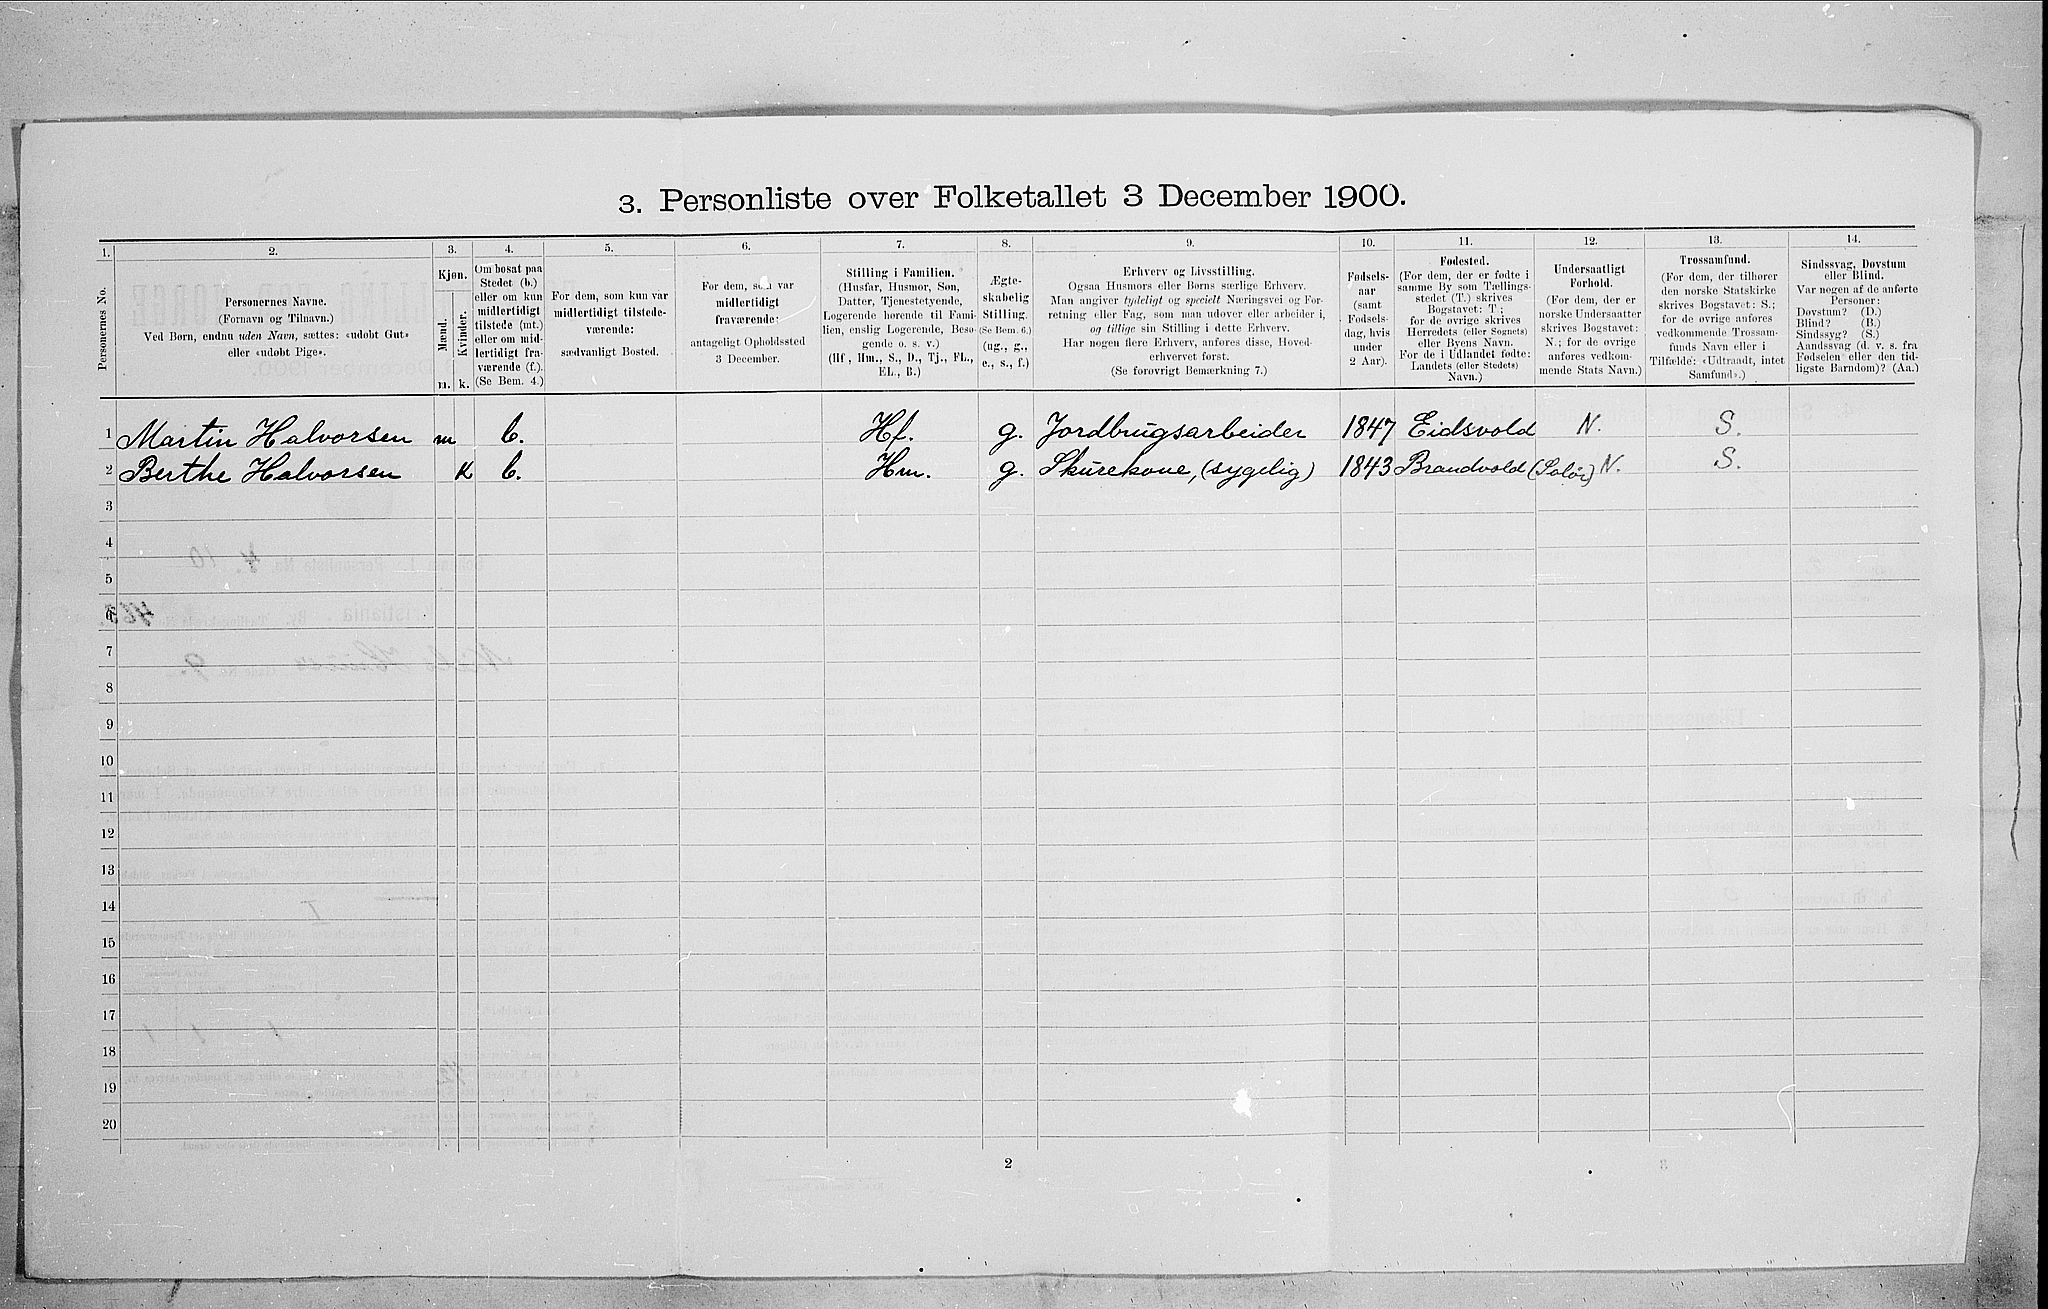 3. Personliste over Folketallet 3 December 1900.
1. 2. 3. 4. 5. 6. 7. 8. 9. 10. 11. 12. 13. 14.
Personernes No.
Personernes Navne.
(Fornavn og Tilnavn.)
Ved Børn, endnu uden Navn, sættes: «udøbt Gut»
eller «udøbt Pige».
Kjøn.
Mænd.
Kvinder.
m. k.
Om bosat paa
Stedet (b.)
eller om kun
midlertidigt
tilstede (mt.)
eller om mid-
lertidigt fra-
værende (f.).
(Se Bem. 4.)
For dem, som kun var
midlertidigt tilstede-
værende:
sædvanligt Bosted.
For dem, som var
midlertidigt
fraværende:
antageligt Opholdssted
3 December.
Stilling i Familien.
(Husfar, Husmor, Søn,
Datter, Tjenestetyende,
Logerende hørende til Fami-
lien, enslig Logerende, Besø-
gende o. s. v.)
(Hf, Hm., S., D., Tj., FL.,
EL., B.)
Ægte-
skabelig
Stilling.
(Se Bem. 6.)
(ug., g.,
e., s., f.)
Erhverv og Livsstilling.
Ogsaa Husmors eller Børns særlige Erhverv.
Man angiver tydeligt og specielt Næringsvei og For-
retning eller Fag, som man udøver eller arbeider i,
og tillige sin Stilling i dette Erhverv.
Har nogen flere Erhverv, anføres disse, Hoved-
erhvervet først.
(Se forøvrigt Bemærkning 7.)
Fødsels-
aar
(samt
Fødsels-
dag, hvis
under
2 Aar).
Fødested.
(For dem, der er fødte i
samme By som Tællings-
stedet (T.) skrives
Bogstavet: T;
for de øvrige skrives
Herredets (eller Sognets)
eller Byens Navn.
For de i Udlandet fødte:
Landets (eller Stedets)
Navn.)
Undersaatligt
Forhold.
(For dem, der er
norske Undersaatter
skrives Bogstavet:
N.; for de øvrige
anføres vedkom-
mende Stats Navn.)
Trossamfund.
(For dem, der tilhører
den norske Statskirke
skrives Bogstavet: S.;
for de øvrige anføres
vedkommende Trossam-
funds Navn eller i
Tilfælde: «Udtraadt, intet
Samfund».)
Sindssvag, Døvstum
eller Blind.
Var nogen af de anførte
Personer:
Døvstum? (D.)
Blind? (B.)
Sindssyg? (S.)
Aandssvag (d. v. s. fra
Fødselen eller den tid-
ligste Barndom)? (Aa.)
1 Martin Halvorsen m b. Hf. g. Jordbrugsarbeider 1847 Eidsvold N. S.
2 Berthe Halvorsen K b. Hm. g. Skurekone, (sygelig) 1843 Brandvold (Solør) N. S.
3
4
5
6
7
8
9
10
11
12
13
14
15
16
17
18
19
20
2